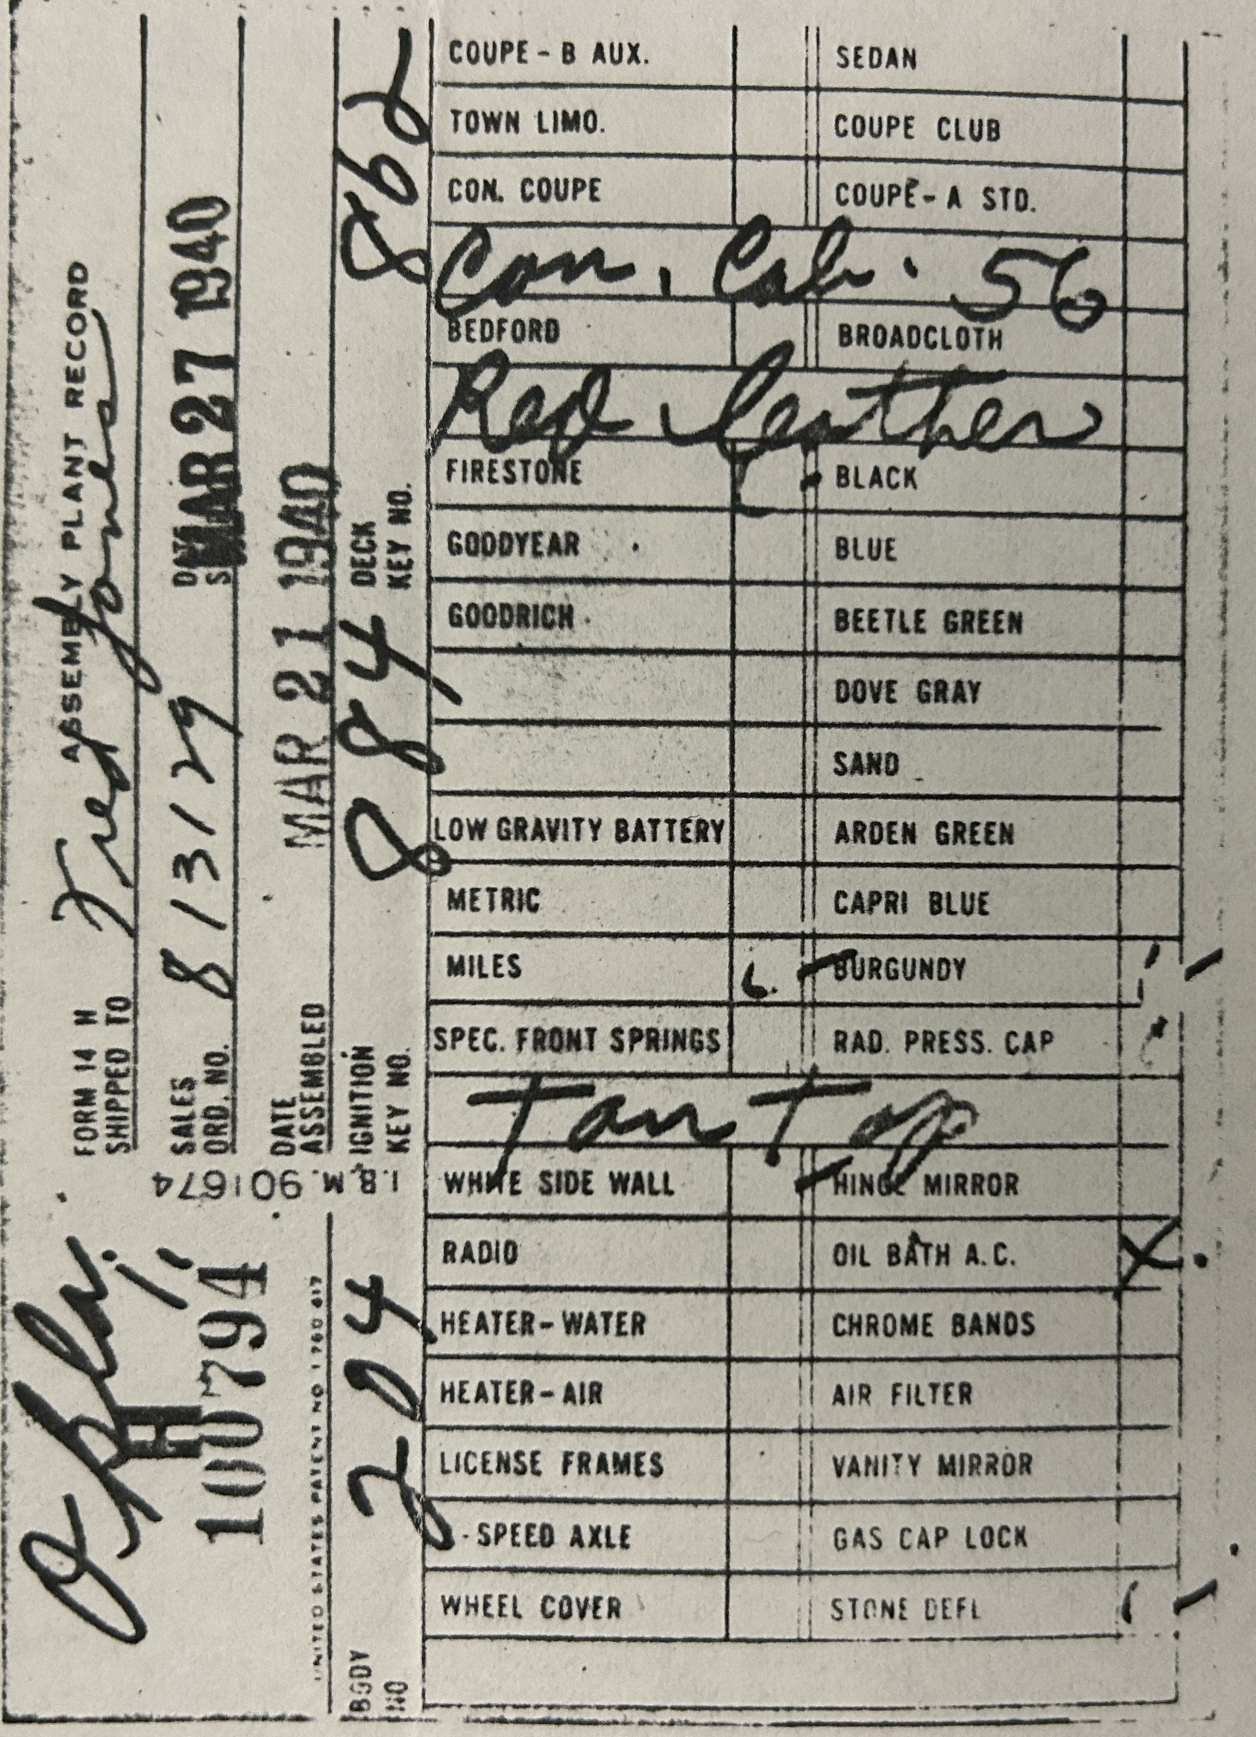 ASSEMBLY PLANT RECORD
FORM 14 H
SHIPPED TO Fred Jones
SALES ORD. NO. 813129
MAR 27 1940
DATE ASSEMBLED MAR 21 1940
IGNITION KEY NO. 8 84
DECK KEY NO. 862
I.B.M. 901674
Okla.
H
100794
UNITED STATES PATENT NO 1 780 617
BODY NO 204
COUPE - B AUX. SEDAN
TOWN LIMO. COUPE CLUB
CON. COUPE COUPE - A STD.
Con. Cab. 56
BEDFORD BROADCLOTH
Red leather
FIRESTONE BLACK
GOODYEAR BLUE
GOODRICH BEETLE GREEN
DOVE GRAY
SAND
LOW GRAVITY BATTERY ARDEN GREEN
METRIC CAPRI BLUE
MILES BURGUNDY
SPEC. FRONT SPRINGS RAD. PRESS. CAP
Tan Top
WHITE SIDE WALL HINGE MIRROR
RADIO OIL BATH A.C. X
HEATER - WATER CHROME BANDS
HEATER - AIR AIR FILTER
LICENSE FRAMES VANITY MIRROR
- SPEED AXLE GAS CAP LOCK
WHEEL COVER STONE DEFL